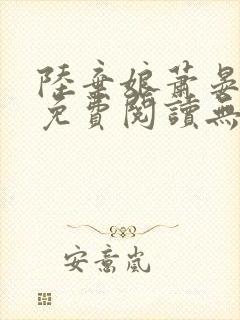 陸棄娘蕭晏
免費閱讀無
安意嵐